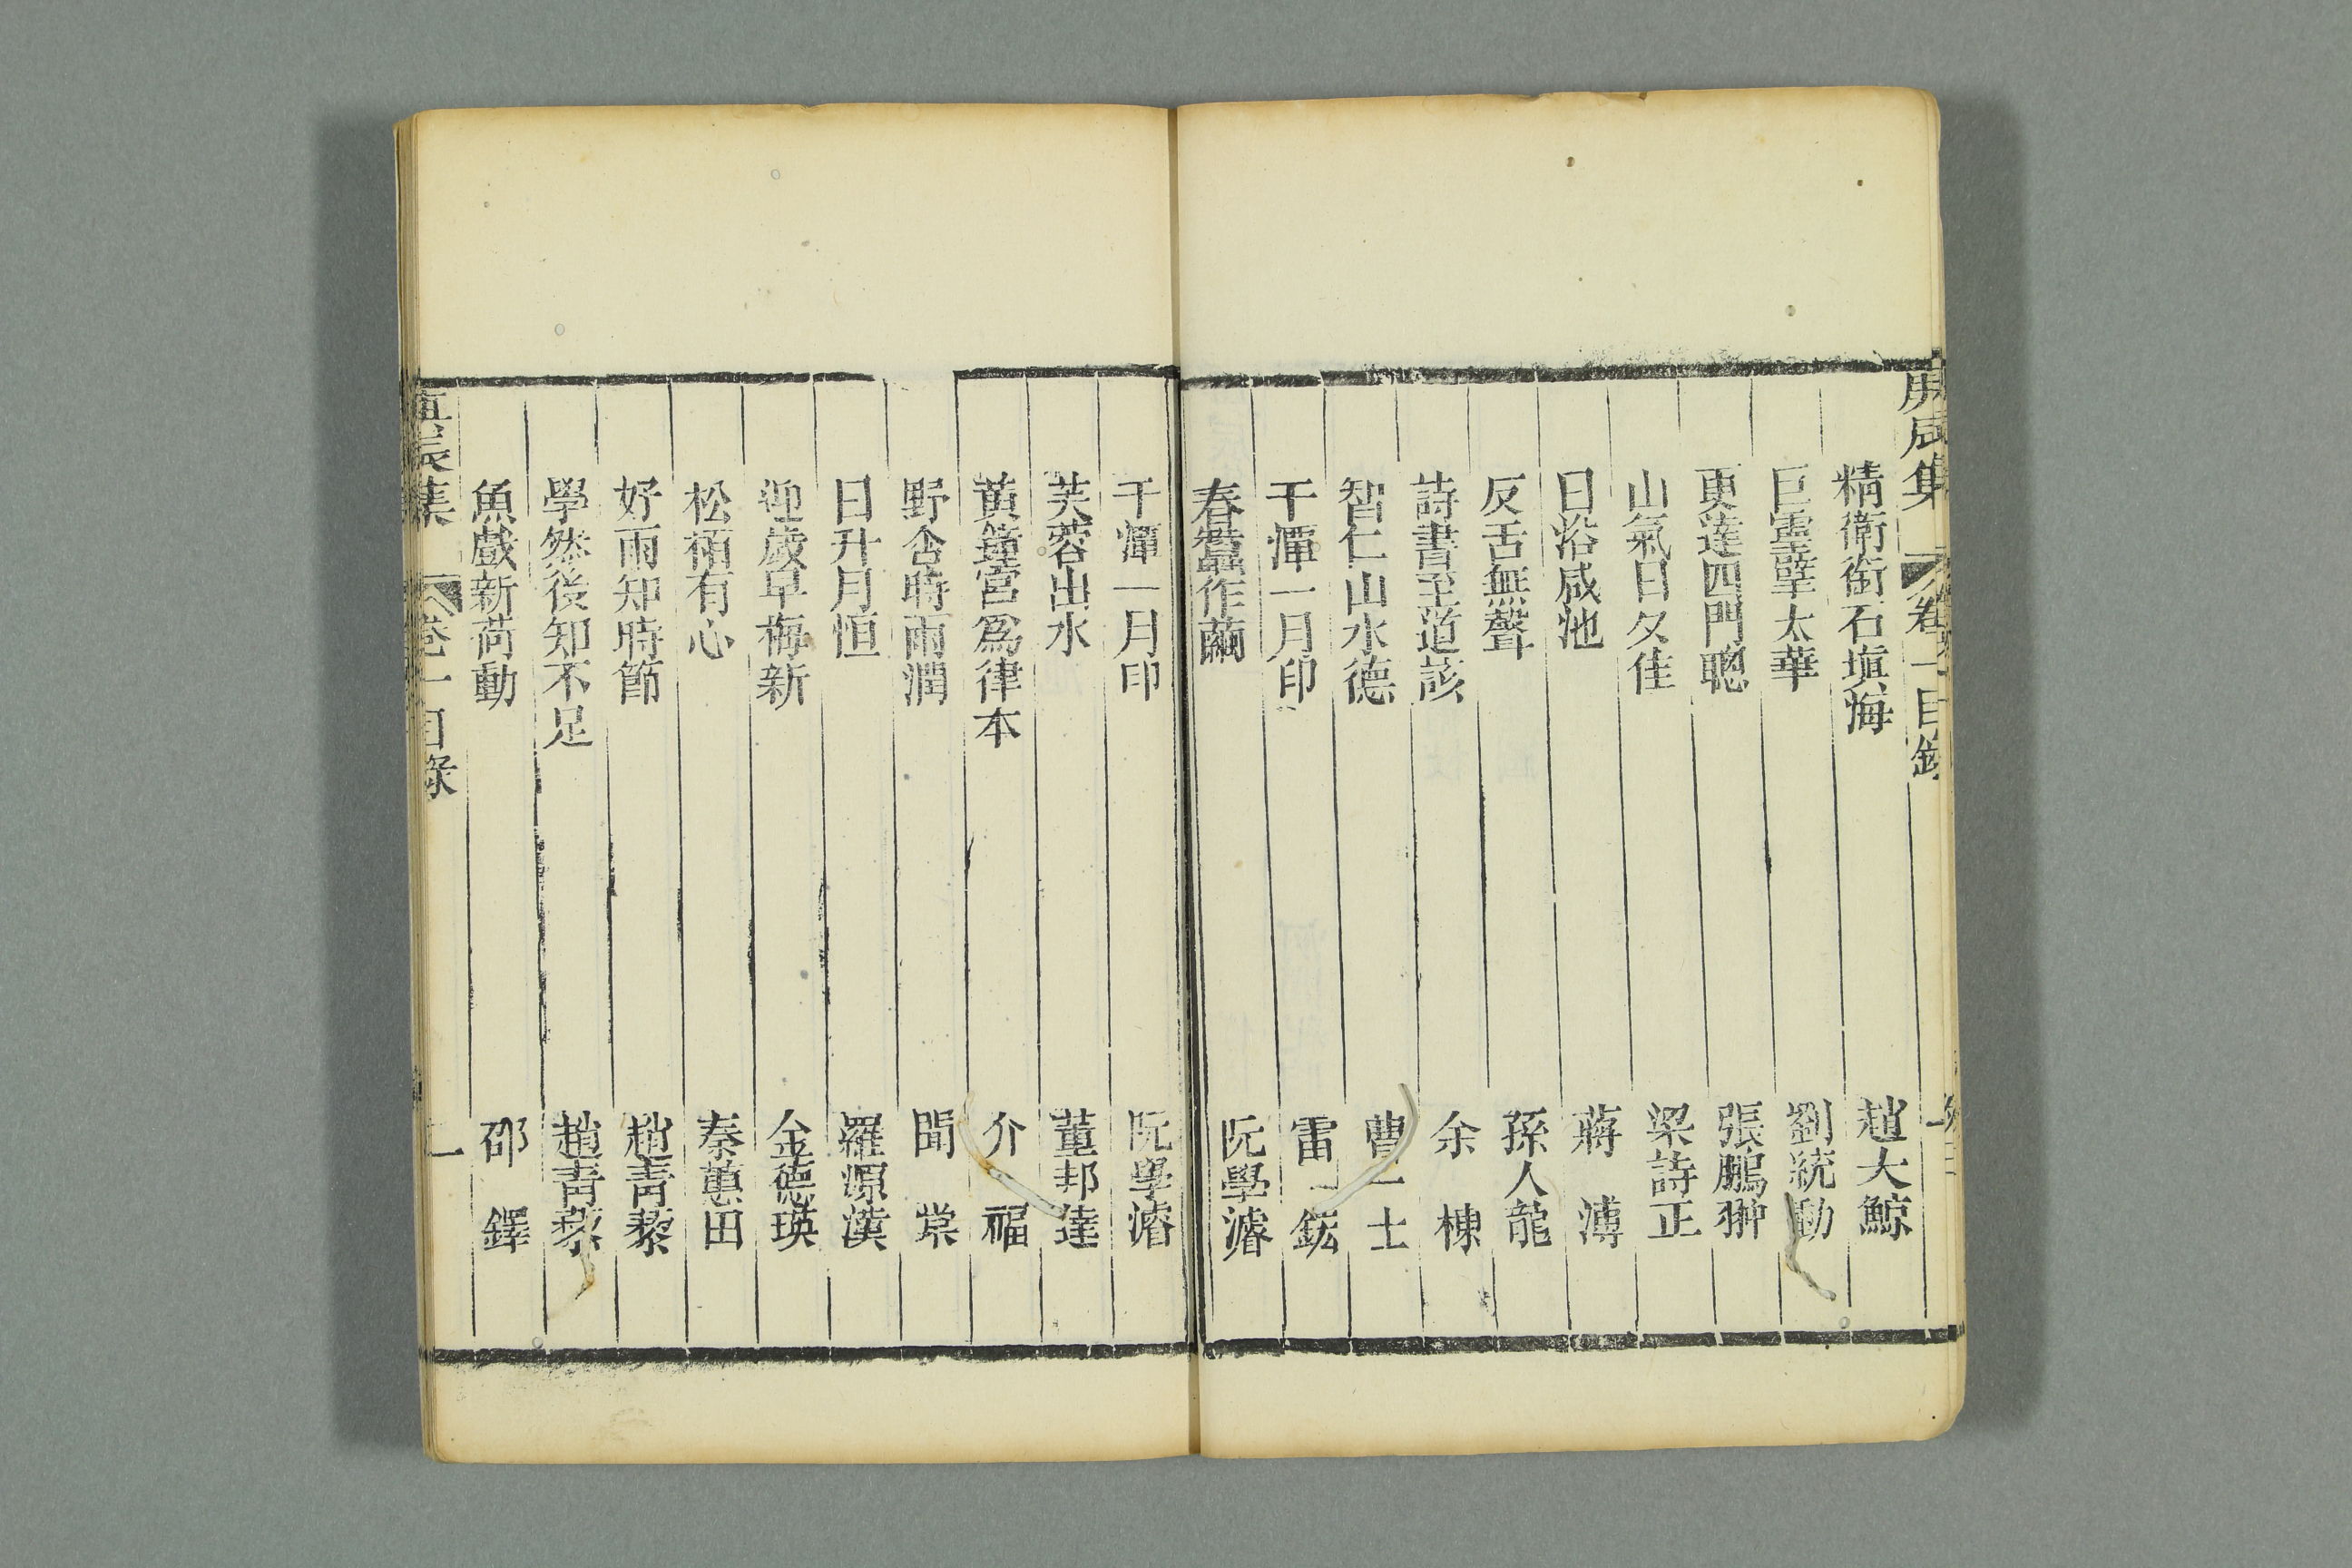 庚辰集 卷一目錄
精衛銜石塡海 趙大鯨
巨靈擘太華 劉統勳
更達四門聰 張鵬翀
山氣日夕佳 梁詩正
日浴咸池 蔣溥
反舌無聲 孫人龍
詩書至道該 余棟
智仁山水德 曹一士
千潭一月印 雷鋐
春蠶作繭 阮學濬
千潭一月印 阮學濬
芙蓉出水 董邦達
黃鐘宮爲律本 介福
野含時雨潤 聞棠
日升月恒 羅源漢
迎歲早梅新 金德瑛
松栢有心 秦蕙田
好雨知時節 趙青藜
學然後知不足 趙青藜
魚戲新荷動 邵鐸
庚辰集 卷一目錄 二